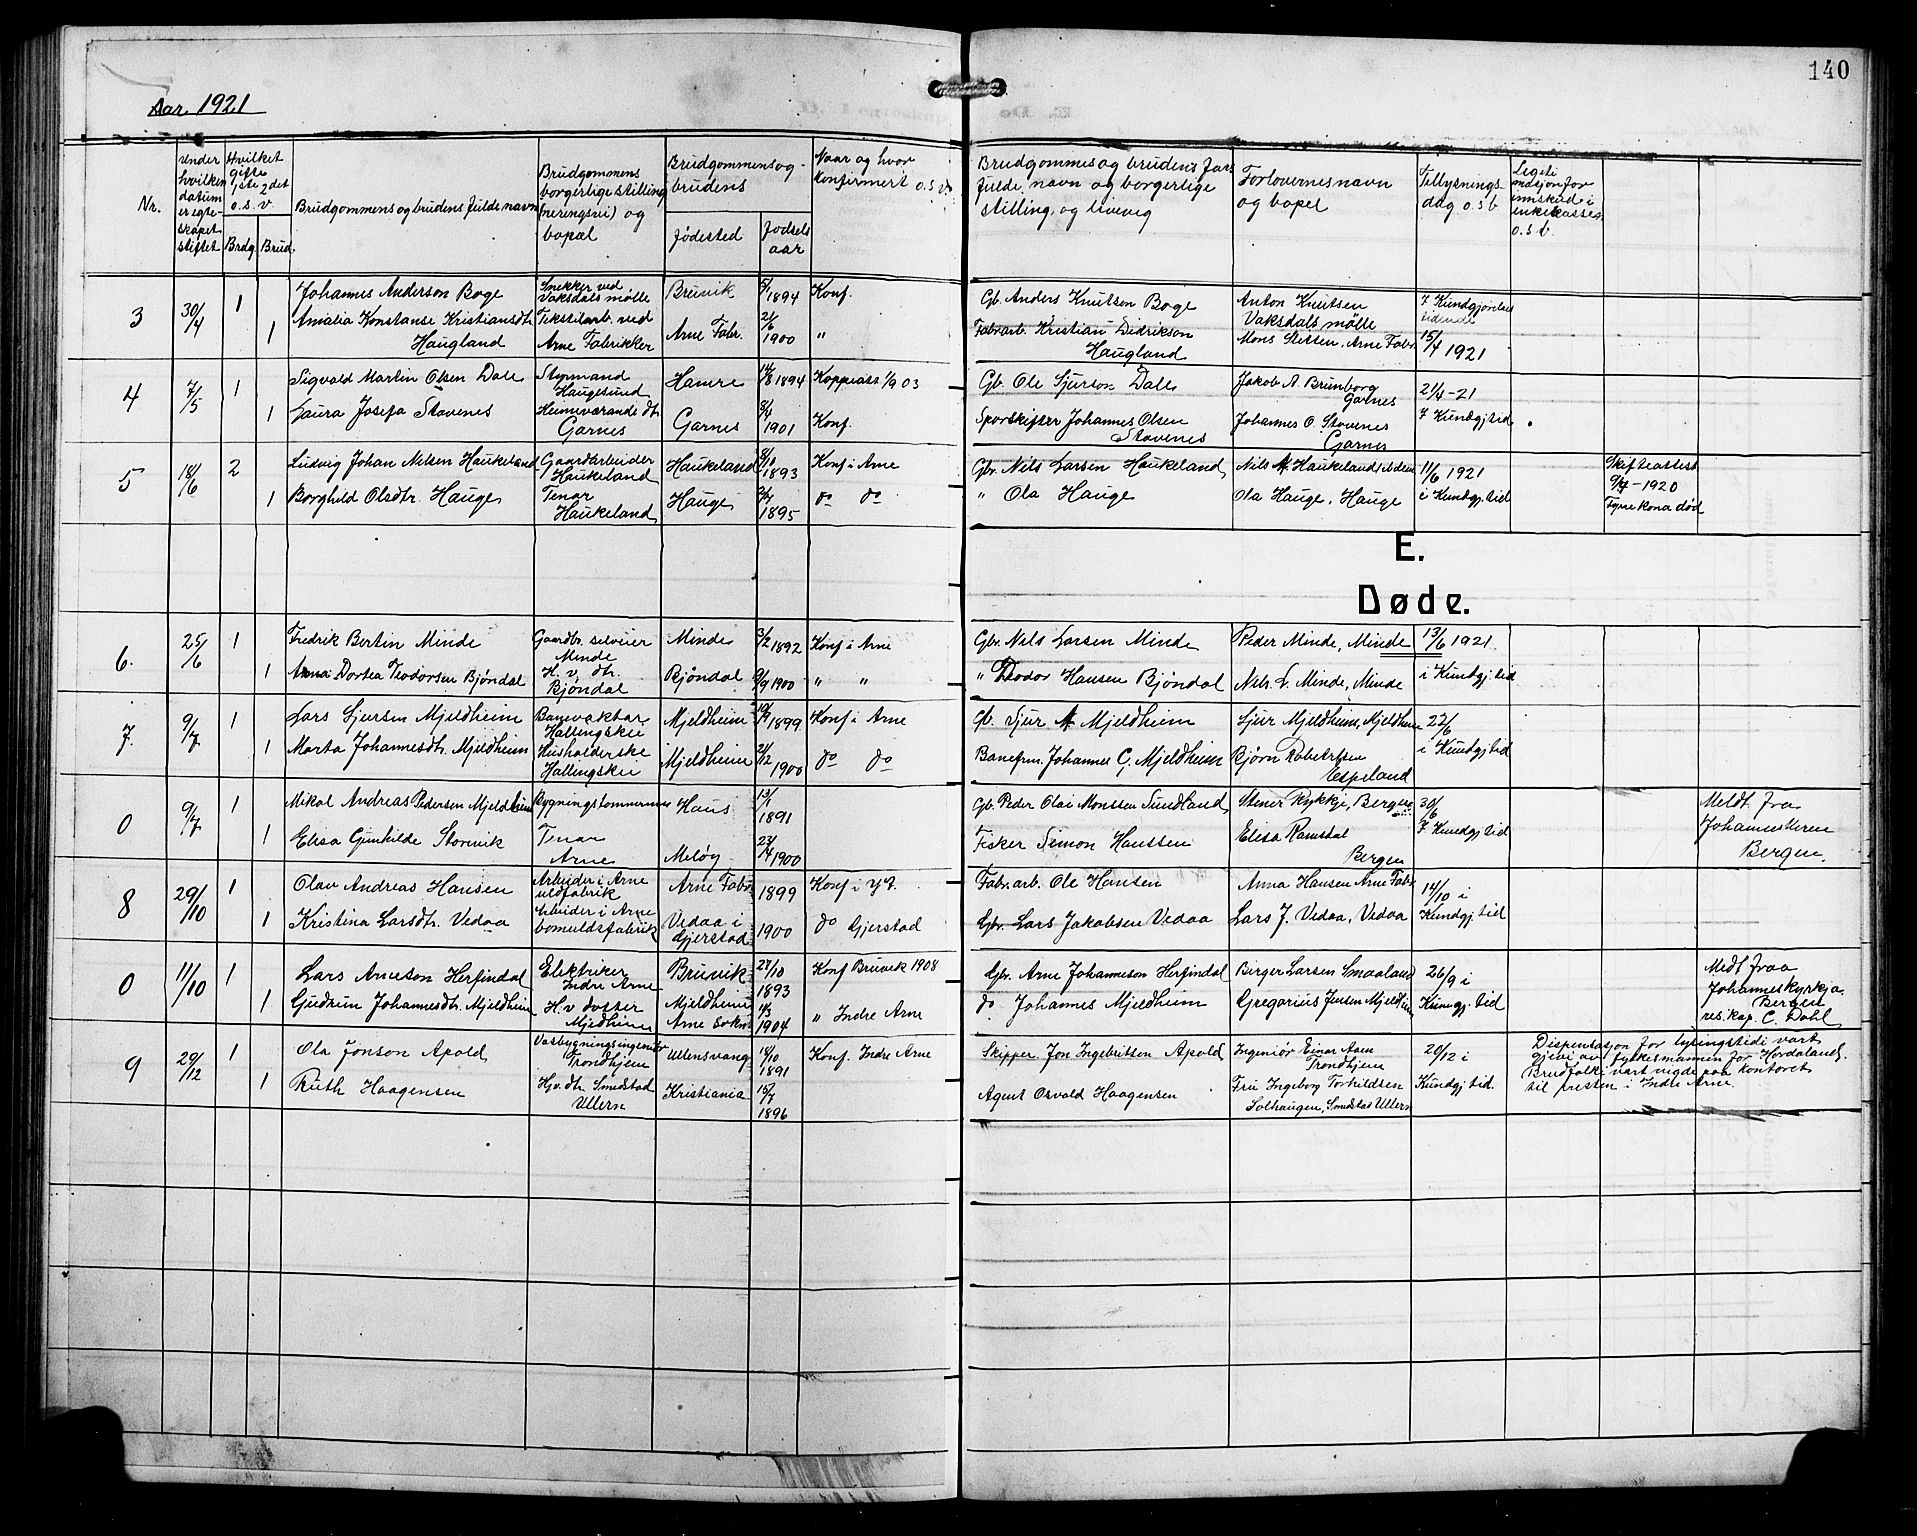 140
Aar 1921
Nr.
Under hvilken datum er egteskapet stiftet
Hvilket gifte 1ste 2det o.s.v
Brdg. Brud.
Brudgommens og brudens fulde navn
Brudgommens borgerlige stilling (neringsvei) og bopæl
Brudgommens og brudens
Fødested
Fødselsaar
Naar og hvor konfirmert o.s.v.
Brudgommes og brudens fars fulde navn og borgerlige stilling, og livevig
Forlovernes navn og bopel
Tillysningsdag o.s.v.
o.s.v.
3 30/4 1 Johannes Anderson Boge Snekker ved Vaksdals mølle Bruvik 1894 Konf. Gb. Anders Knutson Boge Anton Knutsen Vaksdals mølle
1 Amalia Konstanse Kristiansdt. Haugland Tekstilarb. ved Arne Fabrikker Arne Fabr. 21/6 1900 " Fabrarb. Kristian Didrikson Haugland Mons Stitsen, Arne Fabr. 15/4 1921
4 7/5 1 Sigvald Martin Olsen Dale Styrmand Haugesund Hamre 14/8 1894 Koppeatt 1/9 03 Gb. Ole Sjurson Dale Jakob A. Brunborg Garnes 21/4-21
1 Laura Josefa Stavenes Heimeværande dt. Garnes Garnes 8/4 1901 Konf. Sporskifter Johannes Olsen Stavenes Johannes O. Stavenes Garnes 7 Kundgj.tid
5 18/6 2 Ludvig Johan Nilsen Haukeland Gaardarbeider Haukeland Haukeland 8/10 1893 Konf i Arne Gbr. Nils Larsen Haukeland, Nils Haukeland 11/6 1921 Skifteattest 9/7-1920
1 Borghild Olsdtr. Hauge Tenar Haukeland Hauge 1895 do do " Ola Hauge Ola Hauge, Hauge i Kundgj.tid Fyrre kona død
E.
Døde.
6. 25/6 1 Fredrik Bertin Minde Gaardbr. selveier Minde Minde 3/2 1892 Konf i Arne Gbr. Nils Larsen Minde Peder Minde, Minde 13/6 1921
1 Anna Dortea Teodorsen Bjøndal H. v. dtr. Bjøndal Bjøndal 9/9 1900 " " " Teodor Hansen Bjøndal Nils L. Minde, Minde i Kundgj.tid
7. 9/7 1 Lars Sjursen Mjeldheim Banevaktar Hallingskei Mjeldheim 1899 Konf i Arne Gb. Sjur Mjeldheim Sjur Mjeldheim, Mjeldheim 22/6
1 Marta Johannesdt. Mjeldheim Husholderske Hallingskei Mjeldheim 21/2 1900 do do Baneform. Johannes C. Mjeldheim Bjørn Robertsen Espeland i Kundgj.tid
0 9/7 1 Mikal Andreas Pedersen Mjeldheim Bygningstømmermen Haus 13/1 1891 Gb. Peder Olai Monssen Sundland, Stener Rykkje, Bergen 30/6 Meldt fra
1 Elisa Gunhilde Storvik Tenar Arne Meløy 1900 Fisker Simon Hanssen Elisa Ramsdal Bergen 7 Kundgj.tid Johanneskirken Bergen.
8 29/10 1 Olav Andreas Hansen Arbeider i Arne uldfabrik Arne Fabr. 1899 Konf i Y.A. Fabr.arb. Ole Hansen Anna Hansen Arne Fabr. 14/10 i
1 Kristina Larsdtr. Vedaa Arbeider i Arne bomuldsfabrik Vedaa i Gjerstad 1900 do Gjerstad Gbr. Lars Jakobsen Vedaa Lars J. Vedaa, Vedaa Kundgj.tid
0 11/10 1 Lars Arneson Herfindal Elektriker Indre Arne Bruvik 27/10 1893 Konf Bruvik 1908 Gbr. Arne Johanneson Herfindal Birger Larsen Smaaland 26/9 i Medt fraa
1 Gudrun Johannesdt. Mjeldheim H. v. dotter Mjeldheim Mjeldheim Arne Sokn 14/3 1904 " Indre Arne do Johannes Mjeldheim Gregorius Jensen Mjeldheim Kundgj.tid Johanneskyrkja. Bergen res. kap. C. Dahl
9 29/12 1 Ola Jonson Apold Vasbygningsingeniør Trondhjem Ullensvang 18/10 1891 Konf. Indre Arne Skipper Jon Ingebritson Apold Ingeniør Einar Aaen Trondhjem 20/12 i Dispensasjon for lysingstidi vart gjevi av fylkesmannen for Hordaland.
1 Ruth Haagensen Hjv. dtr. Smedstad Ullern Kristiania 15/7 1896 Agent Osvald Haagensen Fru Ingeborg Torkildsen Solhaugen, Smedstad Ullern Kundgj.tid Brudfolki vart vigde paa kontoret til presten i Indre Arne.